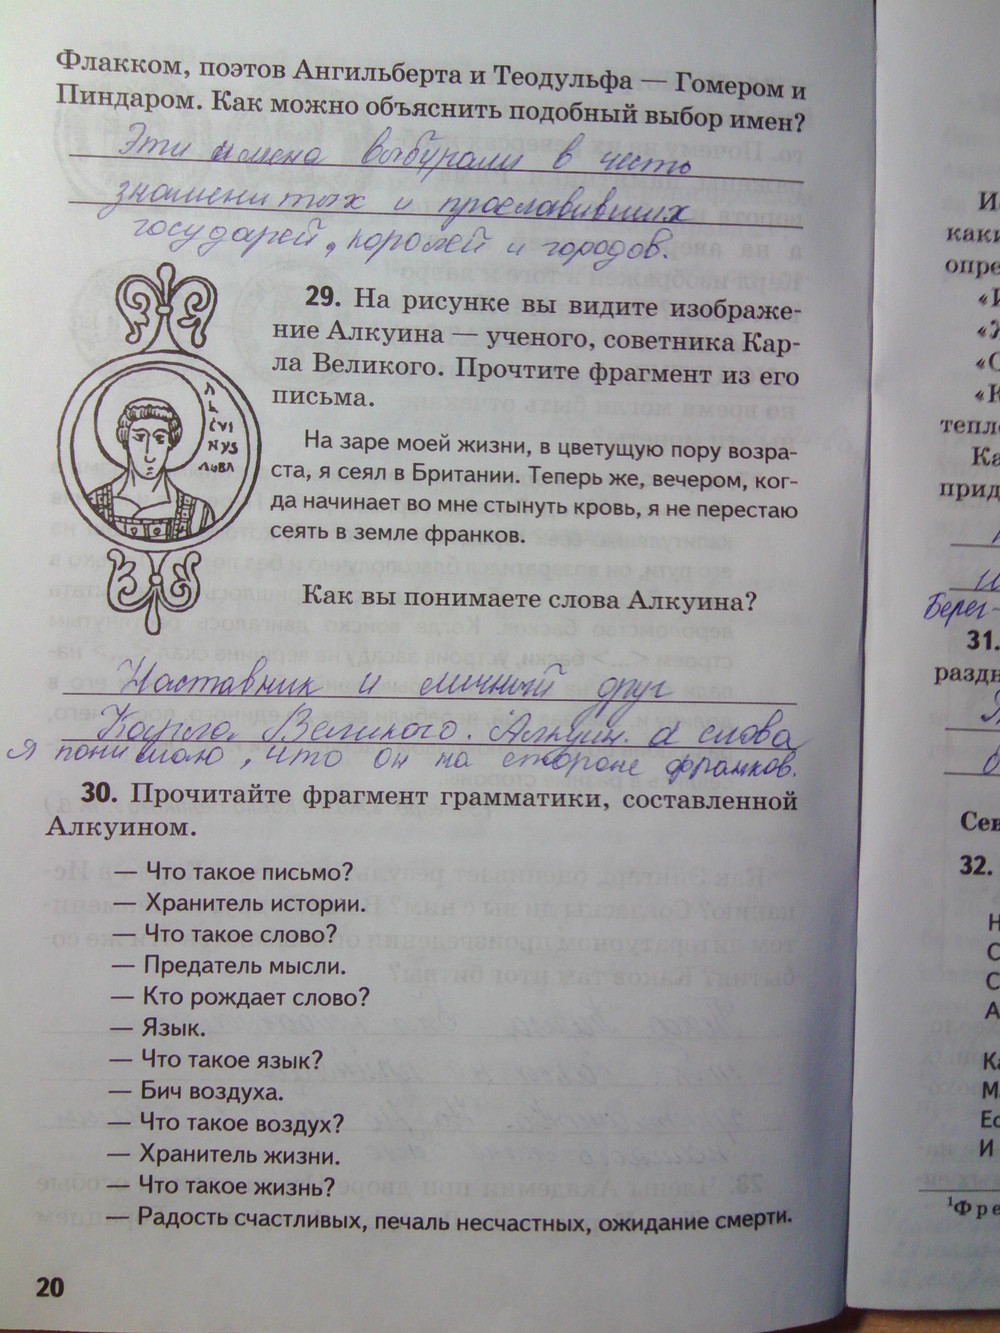 Флакком, поэтов Ангильберта и Теодульфа — Гомером и
Пиндаром. Как можно объяснить подобный выбор имен?
Эти имена выбирали в честь
знаменитых и прославивших
государей, королей и городов.
29. На рисунке вы видите изображе-
ние Алкуина — ученого, советника Кар-
ла Великого. Прочтите фрагмент из его
письма.
На заре моей жизни, в цветущую пору возра-
ста, я сеял в Британии. Теперь же, вечером, ког-
да начинает во мне стынуть кровь, я не перестаю
сеять в земле франков.
Как вы понимаете слова Алкуина?
Наставник и личный друг
Карла Великого. Алкуин. а слова
я понимаю, что он на стороне франков.
30. Прочитайте фрагмент грамматики, составленной
Алкуином.
— Что такое письмо?
— Хранитель истории.
— Что такое слово?
— Предатель мысли.
— Кто рождает слово?
— Язык.
— Что такое язык?
— Бич воздуха.
— Что такое воздух?
— Хранитель жизни.
— Что такое жизнь?
— Радость счастливых, печаль несчастных, ожидание смерти.
20
каки
опре
тепл
Ка
прид
Берег-
31.
разд
Сев
32.
Н
С
С
А
Ка
М
Ес
И
¹Фре